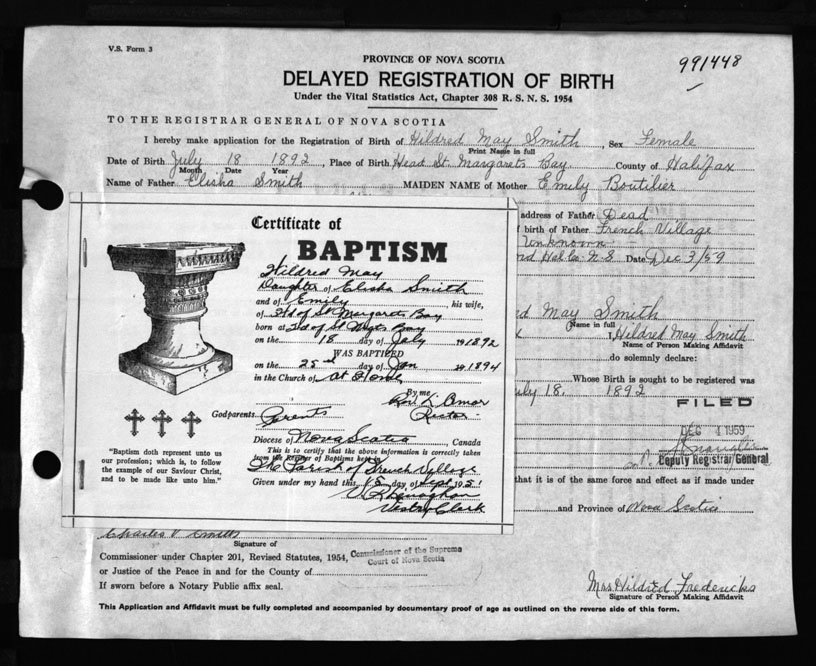 V.S. Form 3
991448
PROVINCE OF NOVA SCOTIA
DELAYED REGISTRATION OF BIRTH
Under the Vital Statistics Act, Chapter 308 R. S. N. S. 1954
TO THE REGISTRAR GENERAL OF NOVA SCOTIA
I hereby make application for the Registration of Birth of Hildred May Smith, Sex Female
Print Name in full
Date of Birth July 18 1892, Place of Birth Head St. Margarets Bay County of Halifax
Month Date Year
Name of Father Elisha Smith MAIDEN NAME of Mother Emily Boutilier
address of Father Dead
birth of Father French Village
Unknown
Hal. Co. N.S. Date Dec 3/59
May Smith
Name in full
I, Hildred May Smith
Name of Person Making Affidavit
do solemnly declare:
Whose Birth is sought to be registered was
July 18, 1892
FILED
DEC 4 1959
Deputy Registrar General
that it is of the same force and effect as if made under
and Province of Nova Scotia
Certificate of
BAPTISM
Hildred May
Daughter of Elisha Smith
and of Emily his wife,
of Hd of St Margarets Bay
born at Hd of St Mgts Bay
on the 18 day of July 1892
WAS BAPTIZED
on the 25th day of Jan 1894
in the Church of At Home
By me
Godparents Parents
Rector
Diocese of Nova Scotia, Canada
This is to certify that the above information is correctly taken
from the Register of Baptisms kept in
The Parish of French Village
Given under my hand this 15 day Sept 1951
Vestry Clerk
"Baptism doth represent unto us
our profession; which is, to follow
the example of our Saviour Christ,
and to be made like unto him."
Charles V Smith
Signature of
Commissioner under Chapter 201, Revised Statutes, 1954, Commissioner of the Supreme
Court of Nova Scotia
or Justice of the Peace in and for the County of
If sworn before a Notary Public affix seal.
Mrs Hildred Fredericks
Signature of Person Making Affidavit
This Application and Affidavit must be fully completed and accompanied by documentary proof of age as outlined on the reverse side of this form.